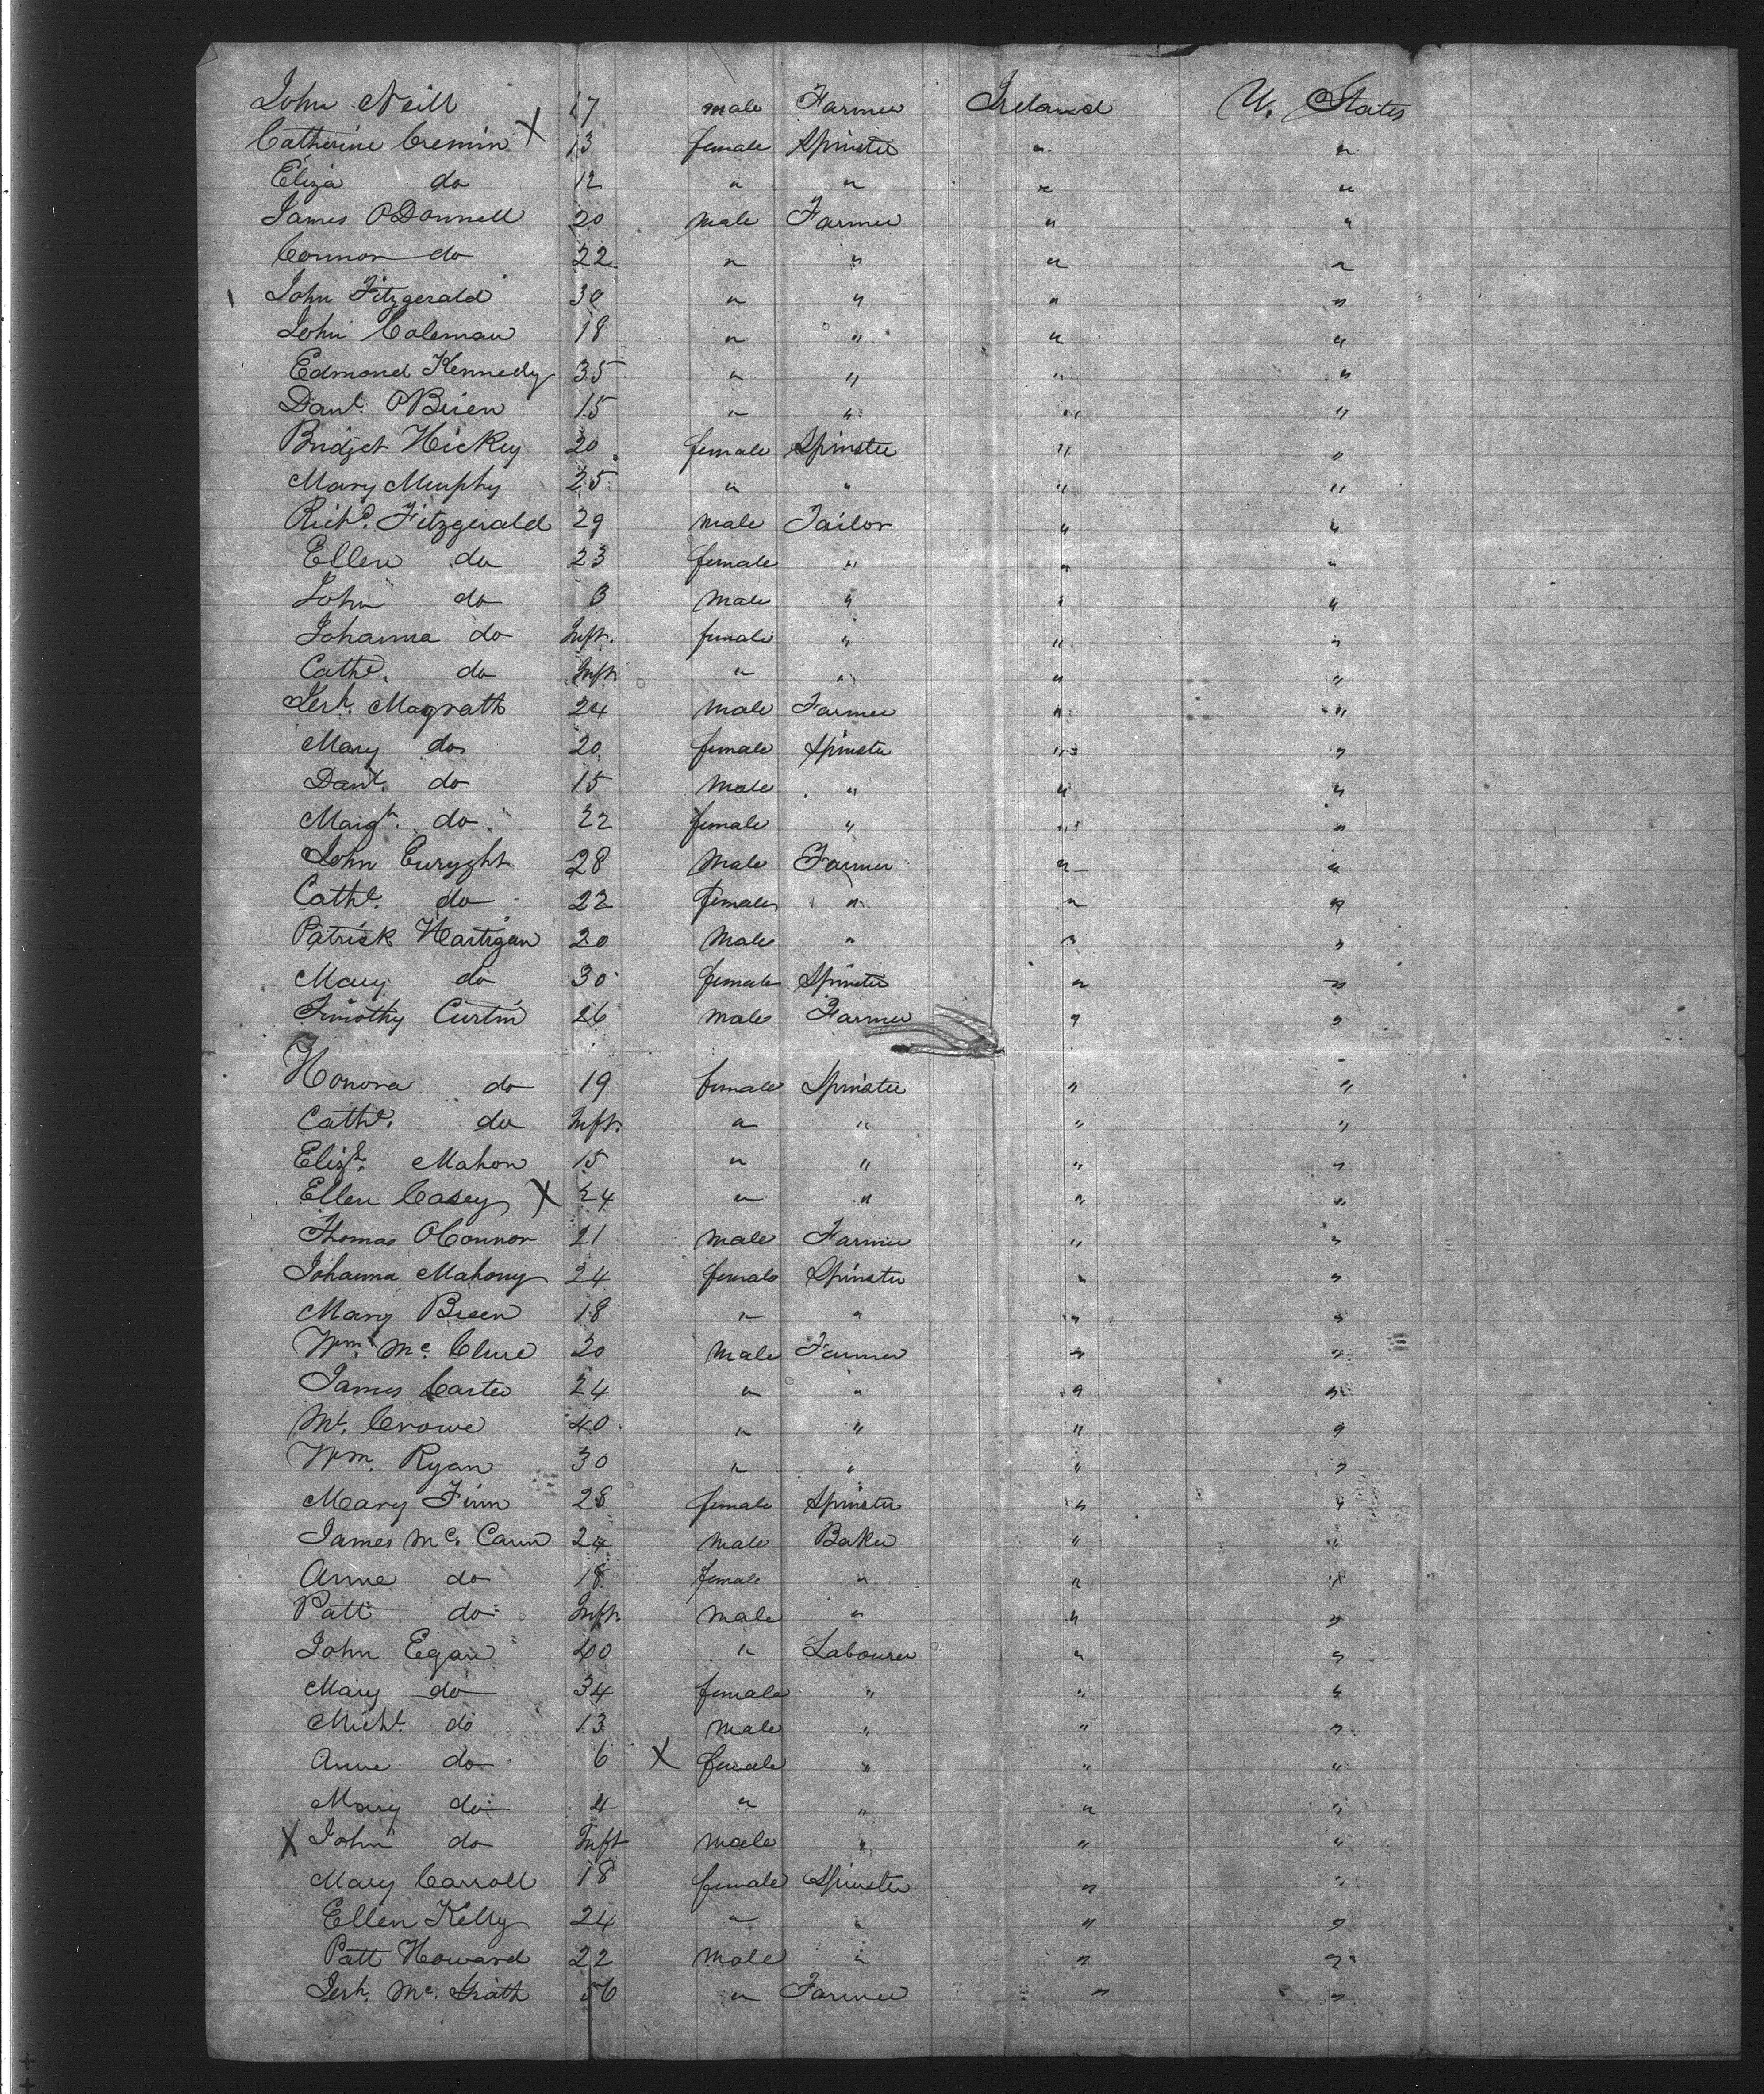 John Neill 17 male Farmer Ireland U. States
Catherine Cremin X 13 female Spinster " "
Eliza do 12 " " " "
James O'Donnell 20 male Farmer " "
Connor do 22 " " " "
John Fitzgerald 30 " " " "
John Coleman 18 " " " "
Edmond Kennedy 35 " " " "
Danl. O'Brien 15 " " " "
Bridget Hickey 20 female Spinster " "
Mary Murphy 25 " " " "
Richd. Fitzgerald 29 male Tailor " "
Ellen do 23 female " " "
John do 3 male " " "
Johanna do Inft. female " " "
Cathe. do Inft. " " " "
Jerh. Magrath 24 male Farmer " "
Mary do 20 female Spinster " "
Danl. do 15 male " " "
Margt. do 22 female " " "
John 28 male Farmer " "
Cathe. do 22 female " " "
Patrick Hartigan 20 male " " "
Mary do 30 female Spinster " "
Timothy Curtin 26 male Farmer " "
Honora do 19 female Spinster " "
Cathe. do Inft. " " " "
Elizh. Mahon 15 " " " "
Ellen Casey X 24 " " " "
Thomas O'Connor 21 male Farmer " "
Johanna Mahony 24 female Spinster " "
Mary Breen 18 " " " "
Wm. Mc. Clure 20 male Farmer " "
James Carter 24 " " " "
Mt. Crowe 40 " " " "
Wm. Ryan 30 " " " "
Mary Finn 28 female Spinster " "
James Mc. Cann 24 male Baker " "
Anne do 18 female " " "
Patt do Inft. male " " "
John Egan 40 " Labourer " "
Mary do 34 female " " "
Michl. do 13 male " " "
Anne do 6 X female " " "
Mary do 4 " " " "
X John do Inft male " " "
Mary Carroll 18 female Spinster " "
Ellen Kelly 24 " " " "
Patt Howard 22 male " " "
Jerh. Mc. Grath 56 " Farmer " "